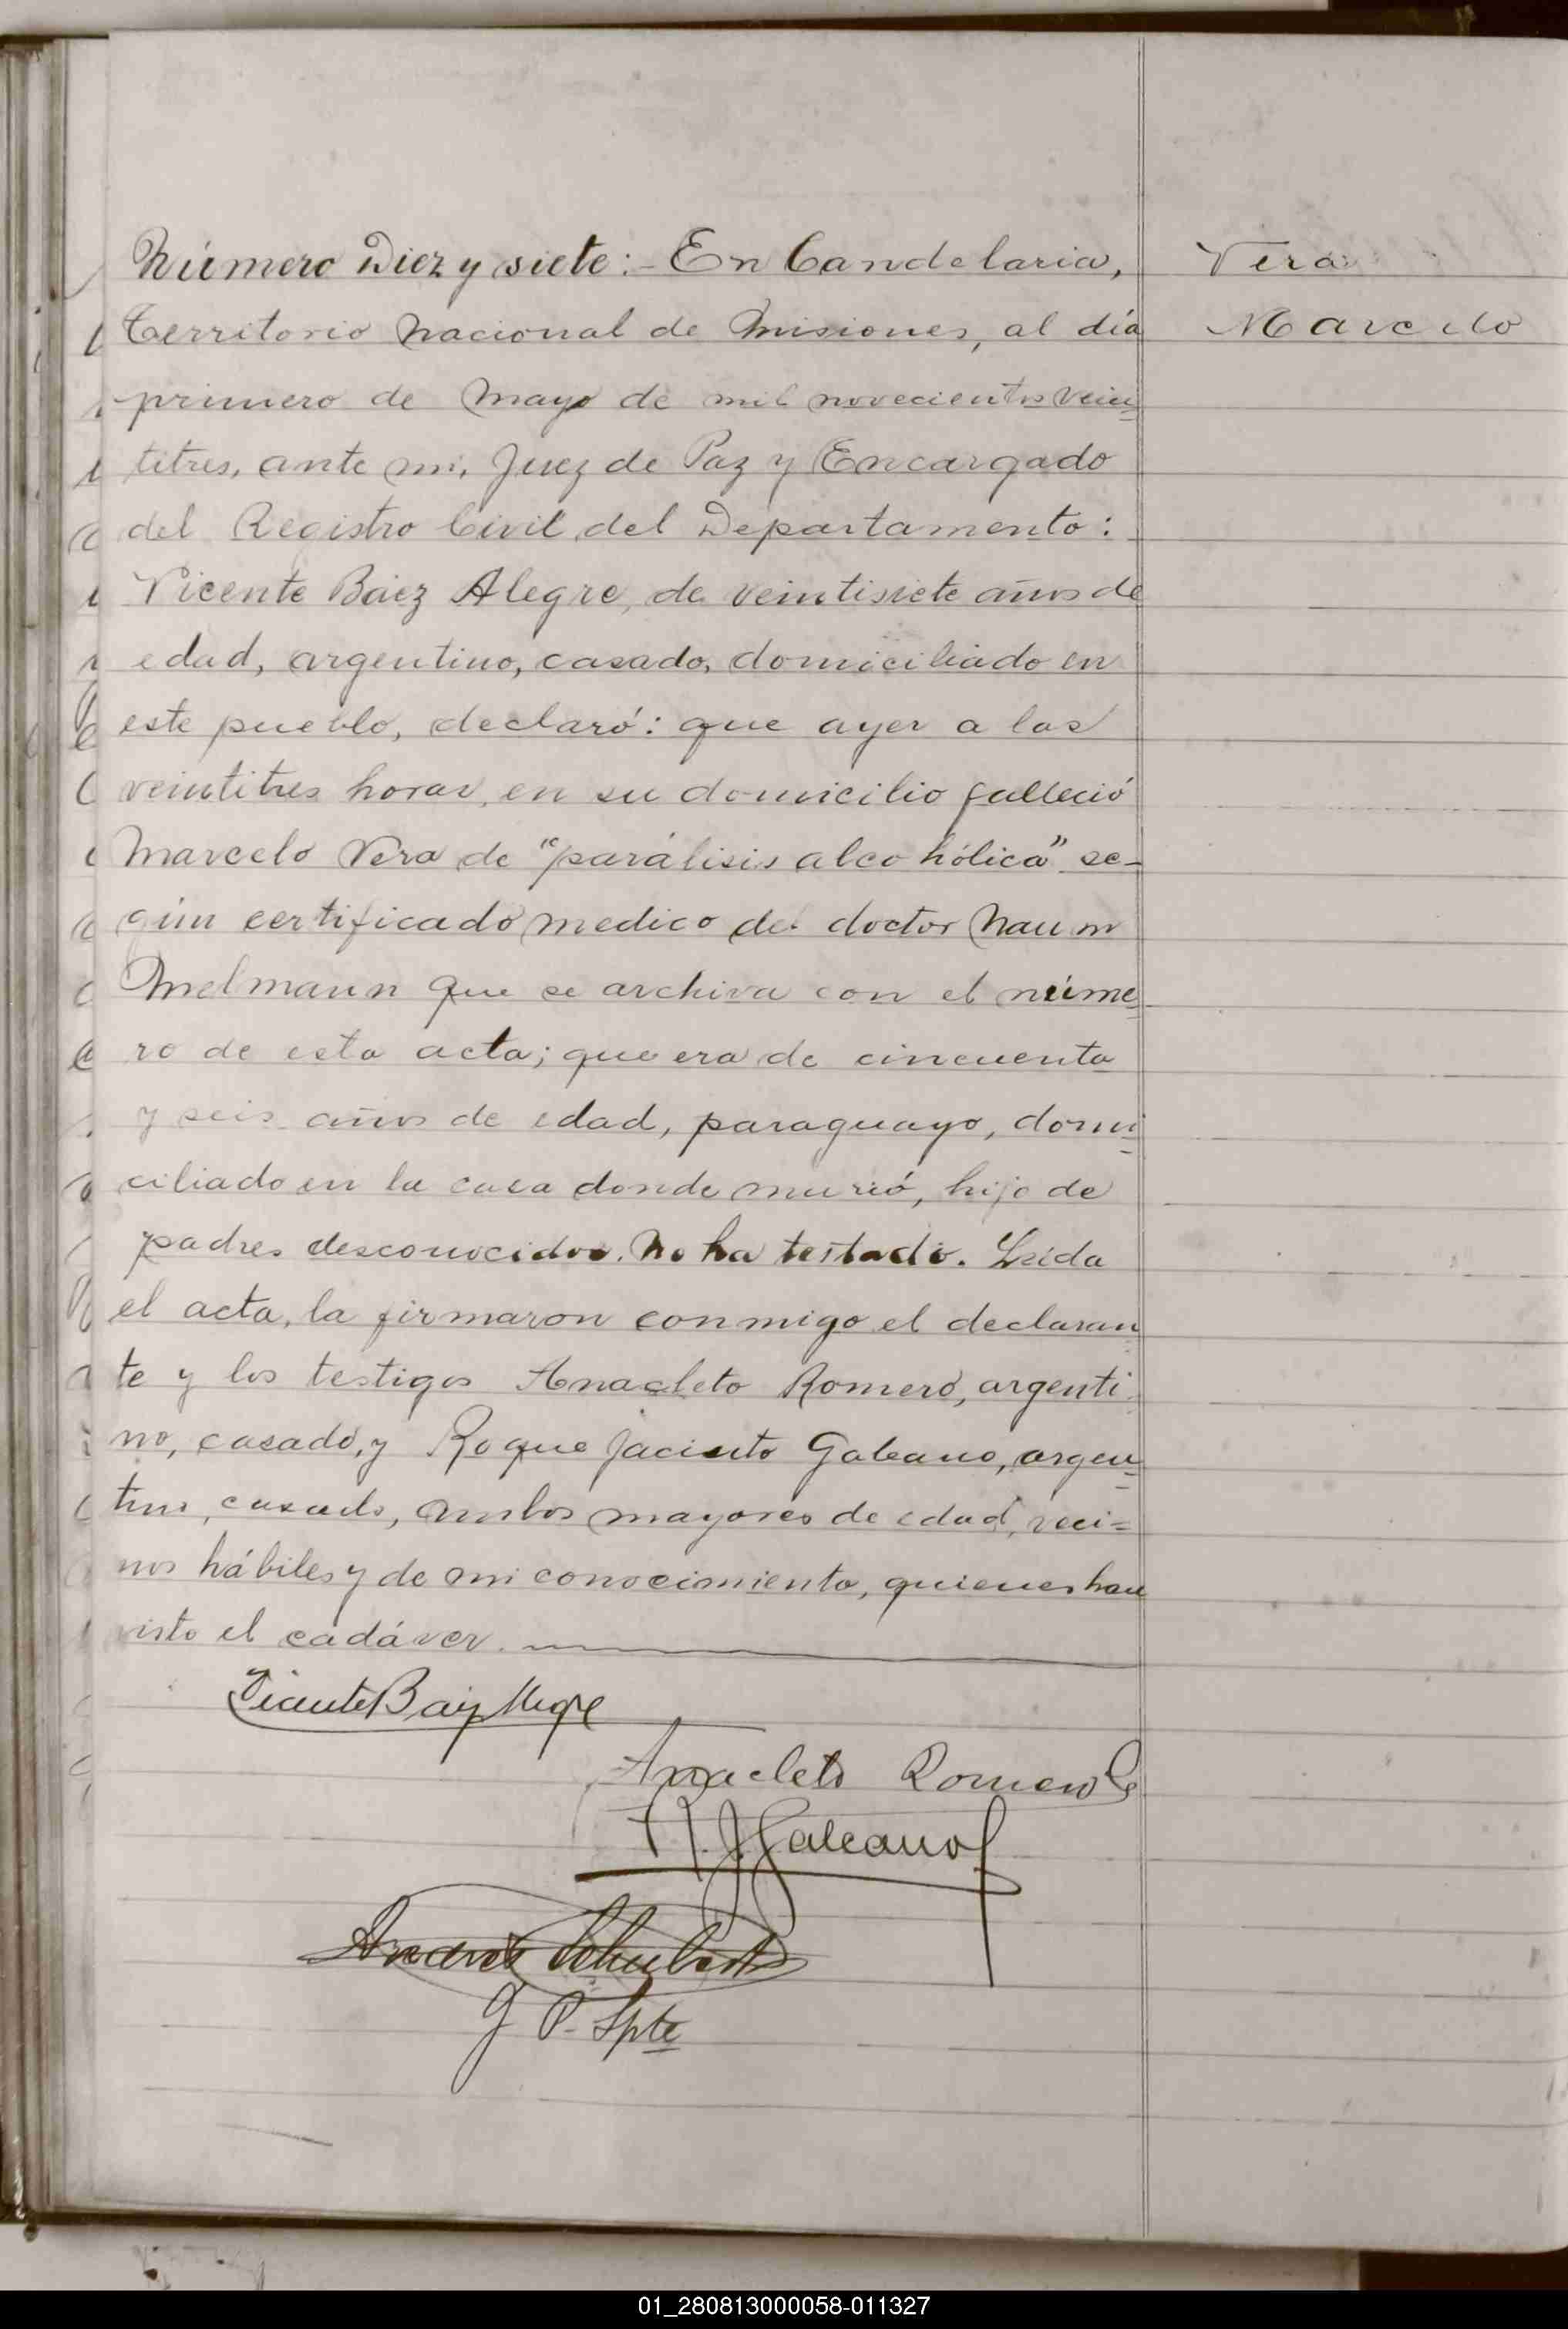 Número Diez y siete:- En Candelaria,
Vera
Territorio Nacional de Misiones, al día
Marcelo
primero de Mayo de mil novecientos vein
titres, ante mi, Juez de Paz y Encargado
del Registro Civil del Departamento:
Vicente Báez Alegre, de veintisiete años de
edad, argentino, casado, domiciliado en
este pueblo, declaró: que ayer a las
veintitres horas, en su domicilio falleció
Marcelo Vera de "parálisis alcohólica" se-
gún certificado medico del doctor Naum
Melmann que se archiva con el núme
ro de esta acta; que era de cincuenta
y seis años de edad, paraguayo, domi
ciliado en la casa donde murió, hijo de
padres desconocidos. No ha testado. Leida
el acta, la firmaron conmigo el declaran
te y los testigos Anacleto Romero, argenti
no, casado, y Roque Jacinto Galeano, argen
tino, casado, ambos mayores de edad, veci=
nos hábiles y de mi conocimiento, quienes han
visto el cadáver.
Vicente Baez Alegre
Anacleto Romero
R. J. Galeano
Andrés Schubert
J. P. Splte
01_280813000058-011327